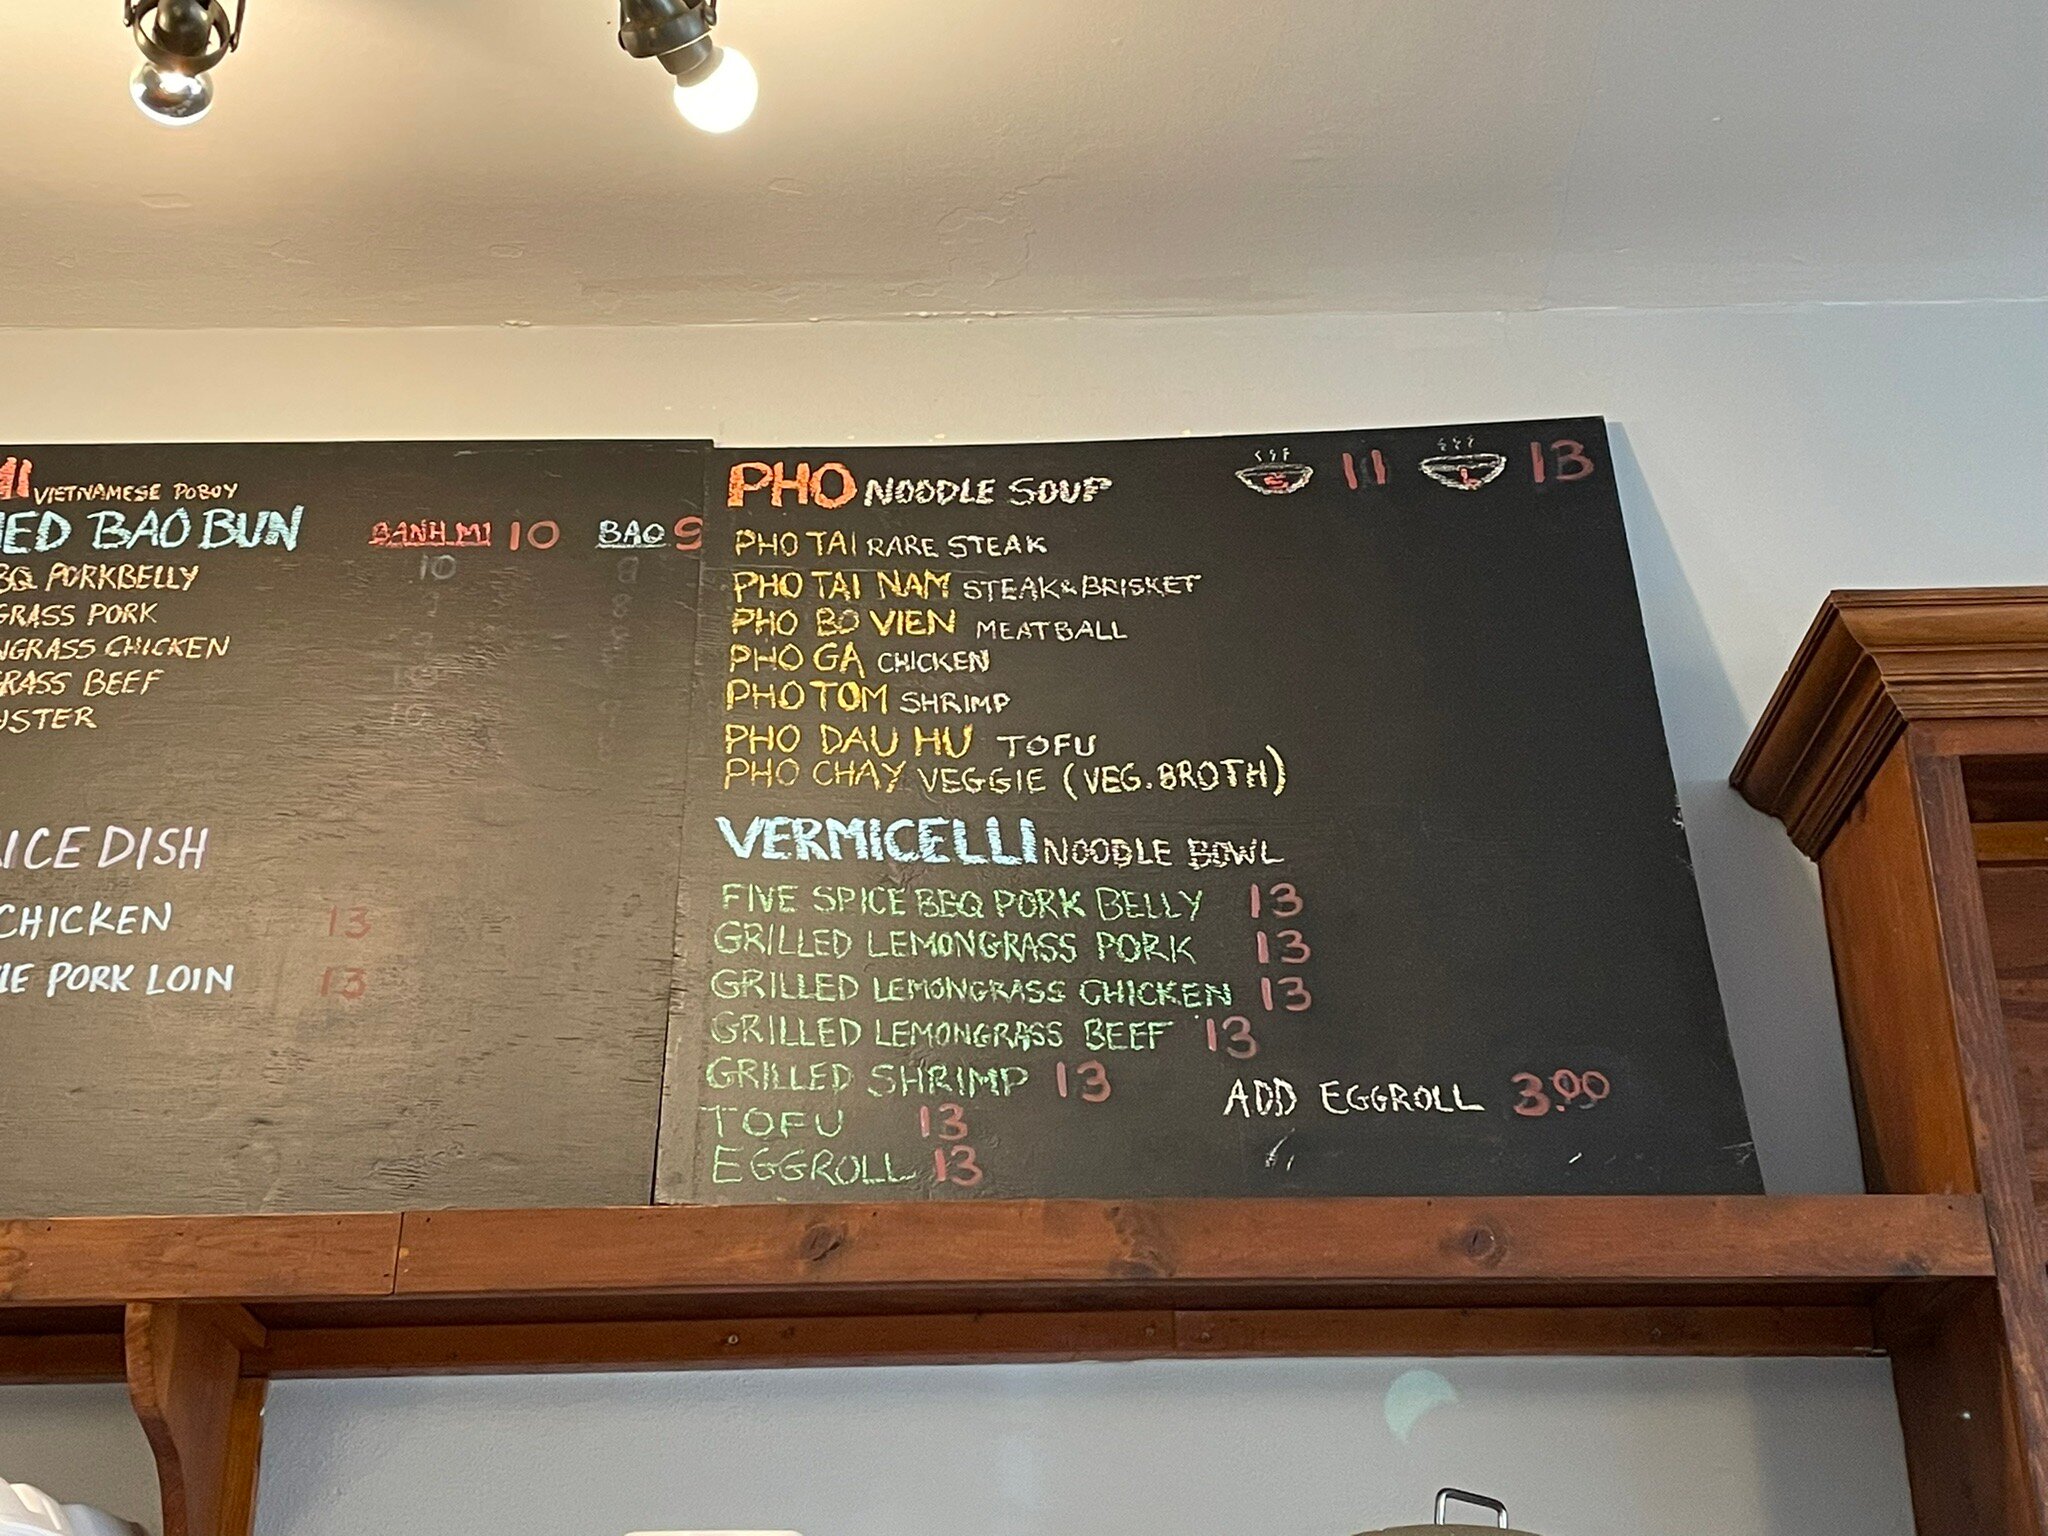 VIETNAMESE POBOY
BAO BUN BANH MI 10 BAO 9
10 8
PORKBELLY
PORK
CHICKEN
BEEF
DISH
CHICKEN 13
PORK LOIN 13
PHO NOODLE SOUP S 11 L 13
PHO TAI RARE STEAK
PHO TAI NAM STEAK & BRISKET
PHO BO VIEN MEATBALL
PHO GA CHICKEN
PHO TOM SHRIMP
PHO DAU HU TOFU
PHO CHAY VEGGIE (VEG. BROTH)
VERMICELLI NOODLE BOWL
FIVE SPICE BBQ PORK BELLY 13
GRILLED LEMONGRASS PORK 13
GRILLED LEMONGRASS CHICKEN 13
GRILLED LEMONGRASS BEEF 13
GRILLED SHRIMP 13
TOFU 13
EGGROLL 13
ADD EGGROLL 3.00